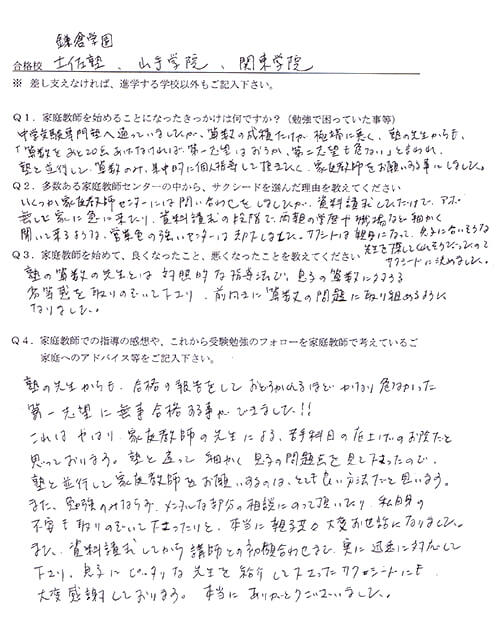 鎌倉学園
合格校 土佐塾、山手学院、関東学院
※ 差し支えなければ、進学する学校以外もご記入下さい。
Q1．家庭教師を始めることになったきっかけは何ですか？（勉強で困っていた事等）
中学受験専門塾へ通っていましたが、算数の成績だけが極端に悪く、塾の先生からも、
「算数をあと20点あげなければ第一志望はおろか、第二志望も危ない」と言われ、
塾と並行して算数のみ、集中的に個人指導して頂きたく、家庭教師をお願いする事にしました。
Q2．多数ある家庭教師センターの中から、サクシードを選んだ理由を教えてください
いくつか家庭教師センターには問い合わせをしましたが、資料請求しただけで、アポ
無しで家に急に来たり、資料請求の段階で、両親の学歴や職場など細かく
聞いて来るような、営業色の強いセンターは却下しました。サクシードは親身になって、息子に合いそうな
先生を探して下さったので
サクシードに決めました。
Q3．家庭教師を始めて、良くなったこと、悪くなったことを教えてください
塾の算数の先生とは対照的な指導法で、息子の算数に対する
劣等感を取りのぞいて下さり、前向きに算数の問題に取り組めるように
なりました。
Q4．家庭教師での指導の感想や、これから受験勉強のフォローを家庭教師で考えているご
家庭へのアドバイス等をご記入下さい。
塾の先生からも、合格の報告をしておどろかれるほど、かなり危なかった
第一志望に無事合格する事ができました!!
これはやはり、家庭教師の先生による、苦手科目の底上げのお陰だと
思っております。塾と違って細かく息子の問題点を見て下さったので、
塾と並行して家庭教師をお願いするのは、とても良い方法だと思います。
また、勉強のみならず、メンタルな部分の相談にのって頂いたり、私自身の
不安も取りのぞいて下さったりと、本当に親子共々大変お世話になりました。
また、資料請求してから講師との初顔合わせまで、実に迅速に対応して
下さり、息子にピッタリな先生を紹介して下さったサクシードにも
大変感謝しております。本当にありがとうございました。